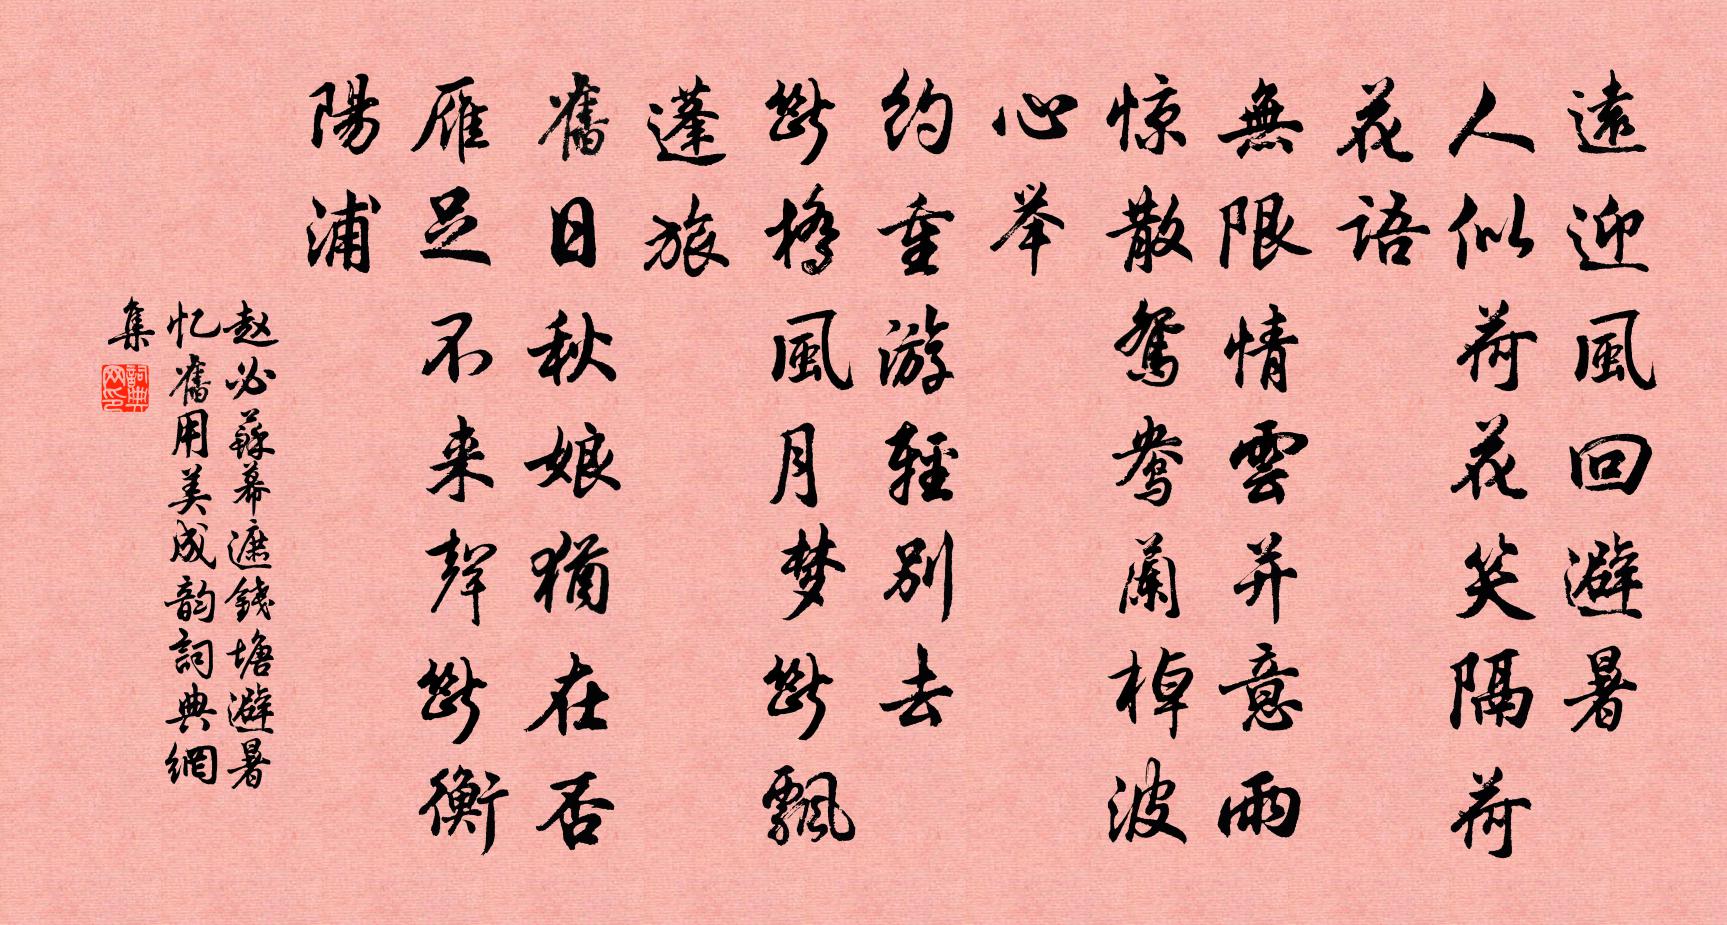 遠迎風回避暑
人似荷花笑隔荷
花語
無限情雲并意雨
惊散鴛鴦蘭棹波
心举
約重游輕別去
斷橋風月梦斷飄
蓬旅
舊日秋娘猶在否
雁足不来聲斷衡
陽浦
赵必蘇幕遮錢塘避暑
忆舊用美成韵詞典網
集
詞典网印